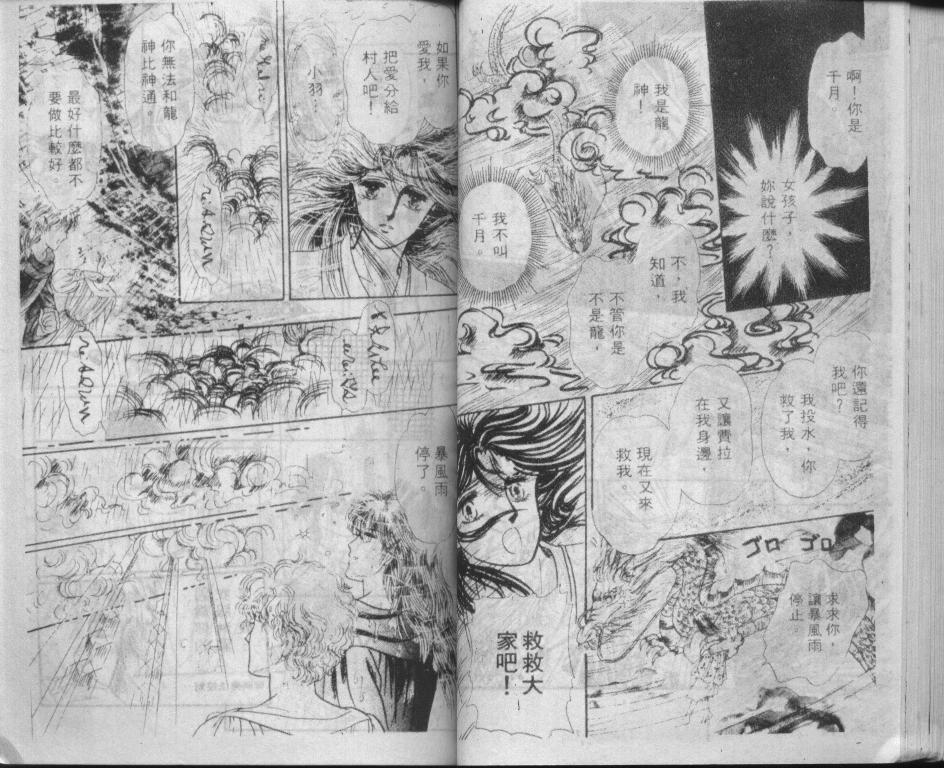 啊！你是
千月。
女孩子，
妳說什麼？
我是龍
神！
我不叫
千月。
不，我
知道，
不管你是
不是龍，
你還記得
我吧？
我投水，你
救了我，
又讓費拉
在我身邊，
現在又來
救我。
ゴロ ゴロ
求求你，
讓暴風雨
停止。
救救大
家吧！
如果你
愛我，
把愛分給
村人吧！
小羽…
你無法和龍
神比神通。
最好什麼都不
要做比較好。
暴風雨
停了。